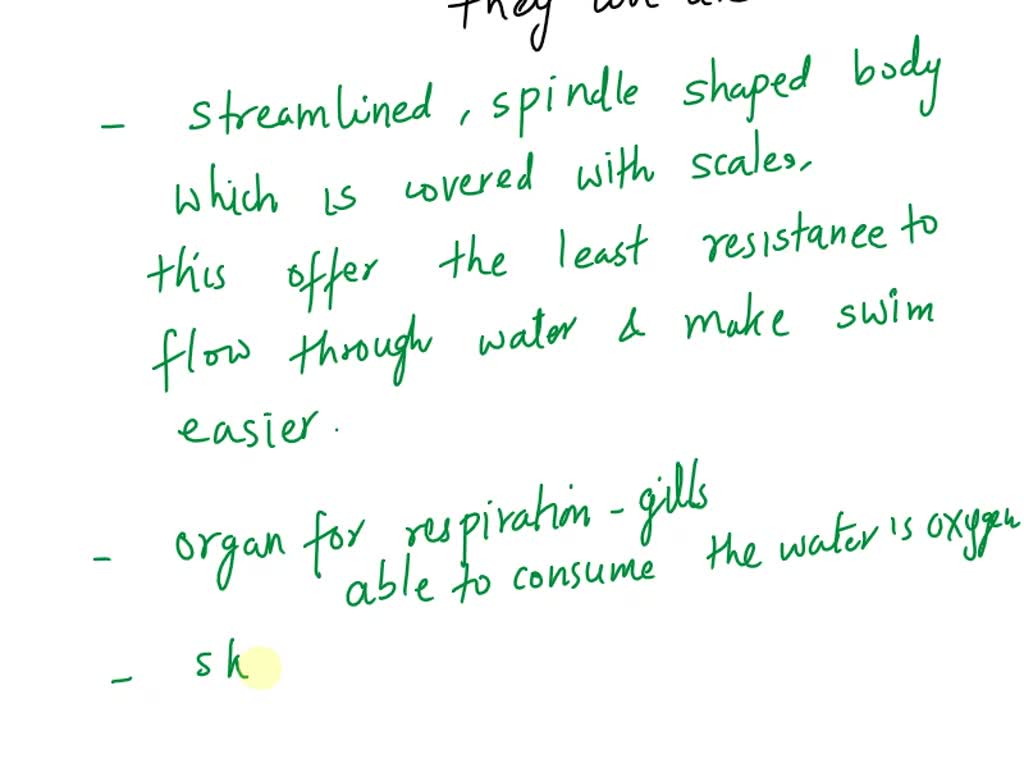 they
- streamlined, spindle shaped body
which is covered with scales,
this offer the least resistance to
flow through water & make swim
easier.
- organ for respiration - gills
able to consume the water is oxygen
- sk